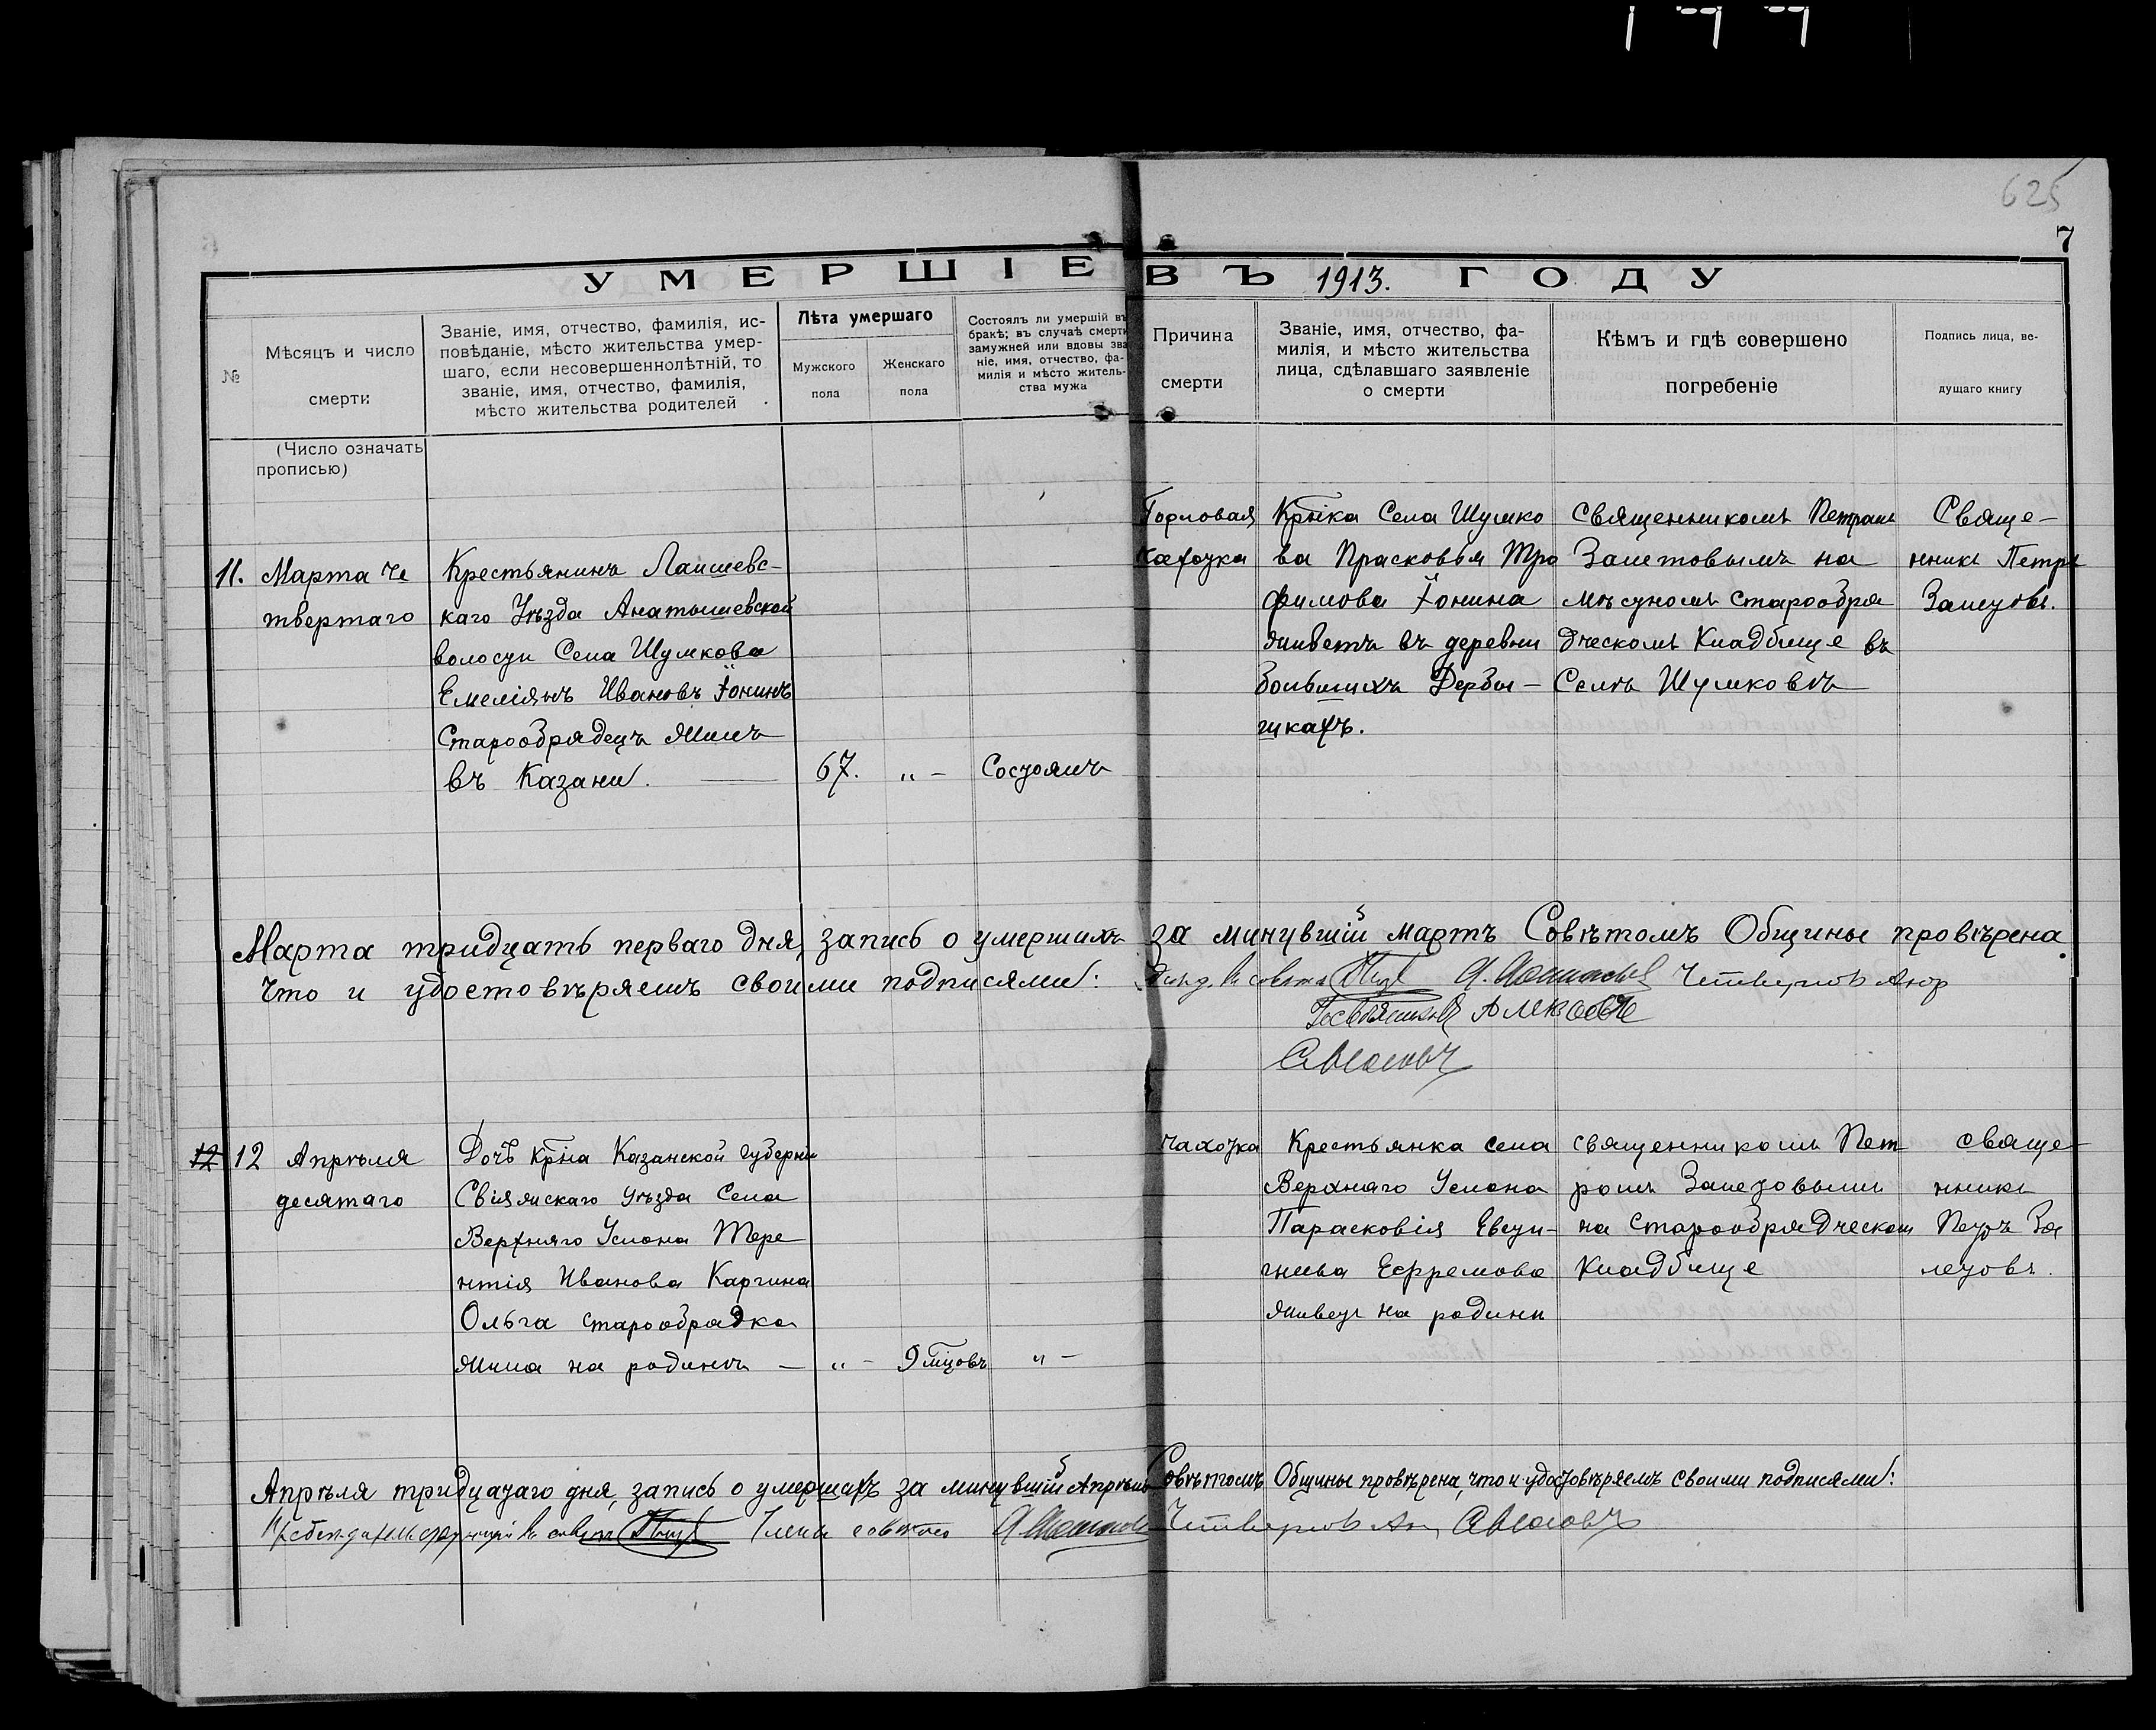 625
7
УМЕРШІЕ ВЪ 1913. ГОДУ
№
Мѣсяцъ и число
смерти
Званіе, имя, отчество, фамилія, ис-
повѣданіе, мѣсто жительства умер-
шаго, если несовершеннолѣтній, то
званіе, имя, отчество, фамилія,
мѣсто жительства родителей
Лѣта умершаго
Мужского
пола
Женскаго
пола
Состоялъ ли умершій въ
бракѣ; въ случаѣ смерти
замужней или вдовы зва
ніе, имя, отчество, фа-
милія и мѣсто житель-
ства мужа
Причина
смерти
Званіе, имя, отчество, фа-
милія, и мѣсто жительства
лица, сдѣлавшаго заявленіе
о смерти
Кѣмъ и гдѣ совершено
погребеніе
Подпись лица, ве-
дущаго книгу
(Число означать
прописью)
11.
Марта че
твертаго
Крестьянинъ Лаишевс-
каго Уѣзда Анатышевской
волости Села Шумкова
Емеліянъ Ивановъ
Старообрядецъ Жилъ
въ Казани.
67.
„ -
Состоялъ
Горловая
чахотка
Крт̄ка Села Шумко
ва Прасковья Тро
фимова
живетъ въ деревни
большихъ Дербы-
шкахъ.
Священникомъ Петромъ
Залетовымъ на
мѣстномъ Старообря
дческомъ Кладбище въ
Селѣ Шумковѣ
Свяще-
нникъ Петръ
Залетовъ.
Марта тридцать перваго дня, запись о умершихъ за минувшій мартъ Совѣтомъ Общины провѣрена.
Что и удостовѣряемъ своими подписями:
12 12
Апрѣля
десятаго
Дочь крт̄на Казанской губерніи
Свіяжскаго уѣзда Села
Верхняго Услона Тере
нтія Иванова Каргина
Ольга старообрядка
Жила на родинѣ -
„ -
9 мц̄овъ
„ -
чахотка
Крестьянка села
Верхняго Услона
Парасковія Евсти-
гнѣева Ефремова
живетъ на родини
священникомъ Пет
ромъ Залетовымъ
на Старообрядческом
Кладбище
свяще-
нникъ
Петръ За
летовъ.
Апрѣля тридцатаго дня, запись о умершихъ за минувшій Апрѣль Совѣтомъ Общины провѣрена, что и удостовѣряемъ своими подписями: